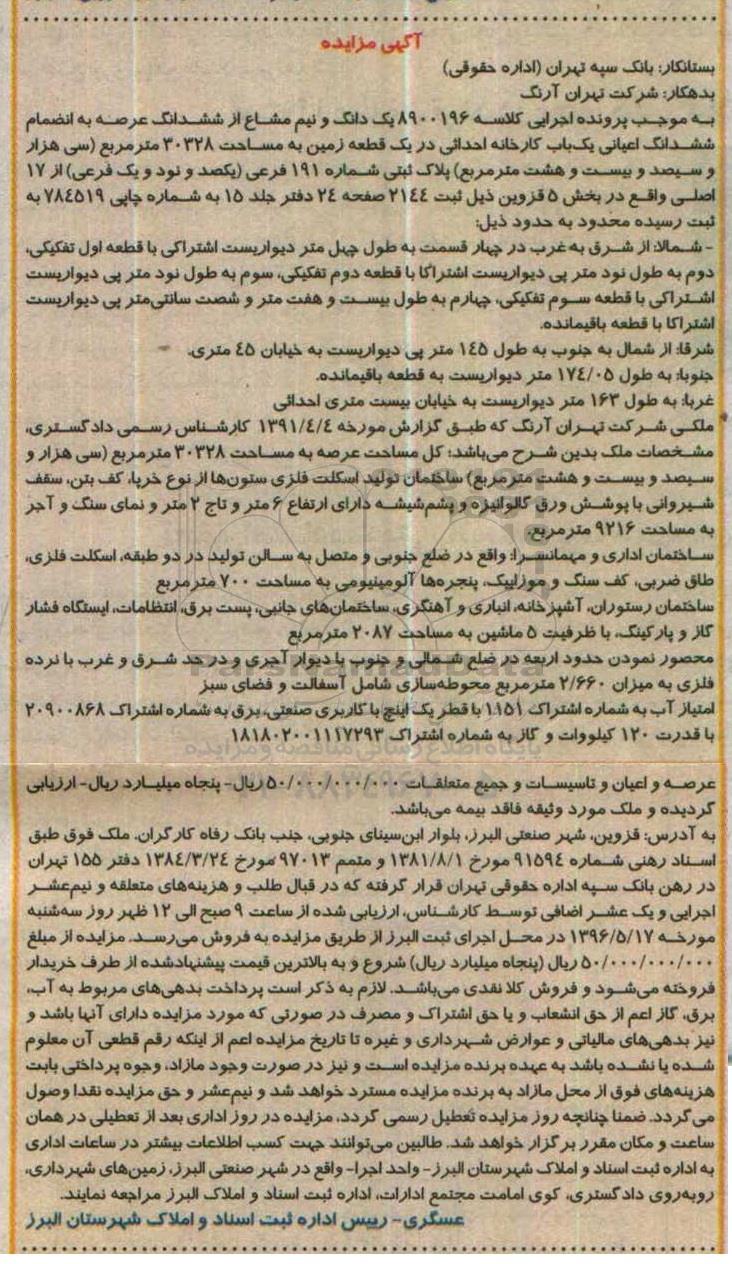 آگهی مزایده
بستانکار: بانک سپه تهران (اداره حقوقی)
بدهکار: شرکت تهران آرنگ
به موجب پرونده اجرایی کلاسه ۸۹۰۰۱۹۶ یک دانگ و نیم مشاع از ششدانگ عرصه به انضمام
ششدانگ اعیانی یک‌باب کارخانه احداثی در یک قطعه زمین به مساحت ۳۰۳۲۸ مترمربع (سی هزار
و سیصد و بیست و هشت مترمربع) پلاک ثبتی شماره ۱۹۱ فرعی (یکصد و نود و یک فرعی) از ۱۷
اصلی واقع در بخش ۵ قزوین ذیل ثبت ۲۱۴۴ صفحه ۲۴ دفتر جلد ۱۵ به شماره چاپی ۷۸۴۵۱۹ به
ثبت رسیده محدود به حدود ذیل:
- شمالا: از شرق به غرب در چهار قسمت به طول چهل متر دیواریست اشتراکی با قطعه اول تفکیکی،
دوم به طول نود متر پی دیواریست اشتراکا با قطعه دوم تفکیکی، سوم به طول نود متر پی دیواریست
اشتراکی با قطعه سوم تفکیکی، چهارم به طول بیست و هفت متر و شصت سانتی‌متر پی دیواریست
اشتراکا با قطعه باقیمانده.
شرقا: از شمال به جنوب به طول ۱۴۵ متر پی دیواریست به خیابان ۴۵ متری.
جنوبا: به طول ۱۷۴/۰۵ متر دیواریست به قطعه باقیمانده.
غربا: به طول ۱۶۳ متر دیواریست به خیابان بیست متری احداثی
ملکی شرکت تهران آرنگ که طبق گزارش مورخه ۱۳۹۱/۴/۴ کارشناس رسمی دادگستری،
مشخصات ملک بدین شرح می‌باشد: کل مساحت عرصه به مساحت ۳۰۳۲۸ مترمربع (سی هزار و
سیصد و بیست و هشت مترمربع) ساختمان تولید اسکلت فلزی ستون‌ها از نوع خرپا، کف بتن، سقف
شیروانی با پوشش ورق گالوانیزه و پشم‌شیشه دارای ارتفاع ۶ متر و تاج ۲ متر و نمای سنگ و آجر
به مساحت ۹۲۱۶ مترمربع.
ساختمان اداری و مهمانسرا: واقع در ضلع جنوبی و متصل به سالن تولید در دو طبقه، اسکلت فلزی،
طاق ضربی، کف سنگ و موزاییک، پنجره‌ها آلومینیومی به مساحت ۷۰۰ مترمربع
ساختمان رستوران، آشپزخانه، انباری و آهنگری، ساختمان‌های جانبی، پست برق، انتظامات، ایستگاه فشار
گاز و پارکینگ، با ظرفیت ۵ ماشین به مساحت ۲۰۸۷ مترمربع
محصور نمودن حدود اربعه در ضلع شمالی و جنوب با دیوار آجری و در حد شرق و غرب با نرده
فلزی به میزان ۲/۶۶۰ مترمربع محوطه‌سازی شامل آسفالت و فضای سبز
امتیاز آب به شماره اشتراک ۱۱۵۱ با قطر یک اینچ با کاربری صنعتی، برق به شماره اشتراک ۲۰۹۰۰۸۶۸
با قدرت ۱۲۰ کیلووات و گاز به شماره اشتراک ۱۸۱۸۰۲۰۰۱۱۱۷۲۹۳
عرصه و اعیان و تاسیسات و جمیع متعلقات ۵۰/۰۰۰/۰۰۰/۰۰۰ ریال- پنجاه میلیارد ریال- ارزیابی
گردیده و ملک مورد وثیقه فاقد بیمه می‌باشد.
به آدرس: قزوین، شهر صنعتی البرز، بلوار ابن‌سینای جنوبی، جنب بانک رفاه کارگران. ملک فوق طبق
اسناد رهنی شماره ۹۱۵۹۴ مورخ ۱۳۸۱/۸/۱ و متمم ۹۷۰۱۳ مورخ ۱۳۸۴/۳/۲۴ دفتر ۱۵۵ تهران
در رهن بانک سپه اداره حقوقی تهران قرار گرفته که در قبال طلب و هزینه‌های متعلقه و نیم‌عشر
اجرایی و یک عشر اضافی توسط کارشناس، ارزیابی شده از ساعت ۹ صبح الی ۱۲ ظهر روز سه‌شنبه
مورخه ۱۳۹۶/۵/۱۷ در محل اجرای ثبت البرز از طریق مزایده به فروش می‌رسد. مزایده از مبلغ
۵۰/۰۰۰/۰۰۰/۰۰۰ ریال (پنجاه میلیارد ریال) شروع و به بالاترین قیمت پیشنهادشده از طرف خریدار
فروخته می‌شود و فروش کلا نقدی می‌باشد. لازم به ذکر است پرداخت بدهی‌های مربوط به آب،
برق، گاز اعم از حق انشعاب و یا حق اشتراک و مصرف در صورتی که مورد مزایده دارای آنها باشد و
نیز بدهی‌های مالیاتی و عوارض شهرداری و غیره تا تاریخ مزایده اعم از اینکه رقم قطعی آن معلوم
شده یا نشده باشد به عهده برنده مزایده است و نیز در صورت وجود مازاد، وجوه پرداختی بابت
هزینه‌های فوق از محل مازاد به برنده مزایده مسترد خواهد شد و نیم‌عشر و حق مزایده نقدا وصول
می‌گردد. ضمنا چنانچه روز مزایده تعطیل رسمی گردد، مزایده در روز اداری بعد از تعطیلی در همان
ساعت و مکان مقرر برگزار خواهد شد. طالبین می‌توانند جهت کسب اطلاعات بیشتر در ساعات اداری
به اداره ثبت اسناد و املاک شهرستان البرز- واحد اجرا- واقع در شهر صنعتی البرز، زمین‌های شهرداری،
روبه‌روی دادگستری، کوی امامت مجتمع ادارات، اداره ثبت اسناد و املاک البرز مراجعه نمایند.
عسگری- رییس اداره ثبت اسناد و املاک شهرستان البرز